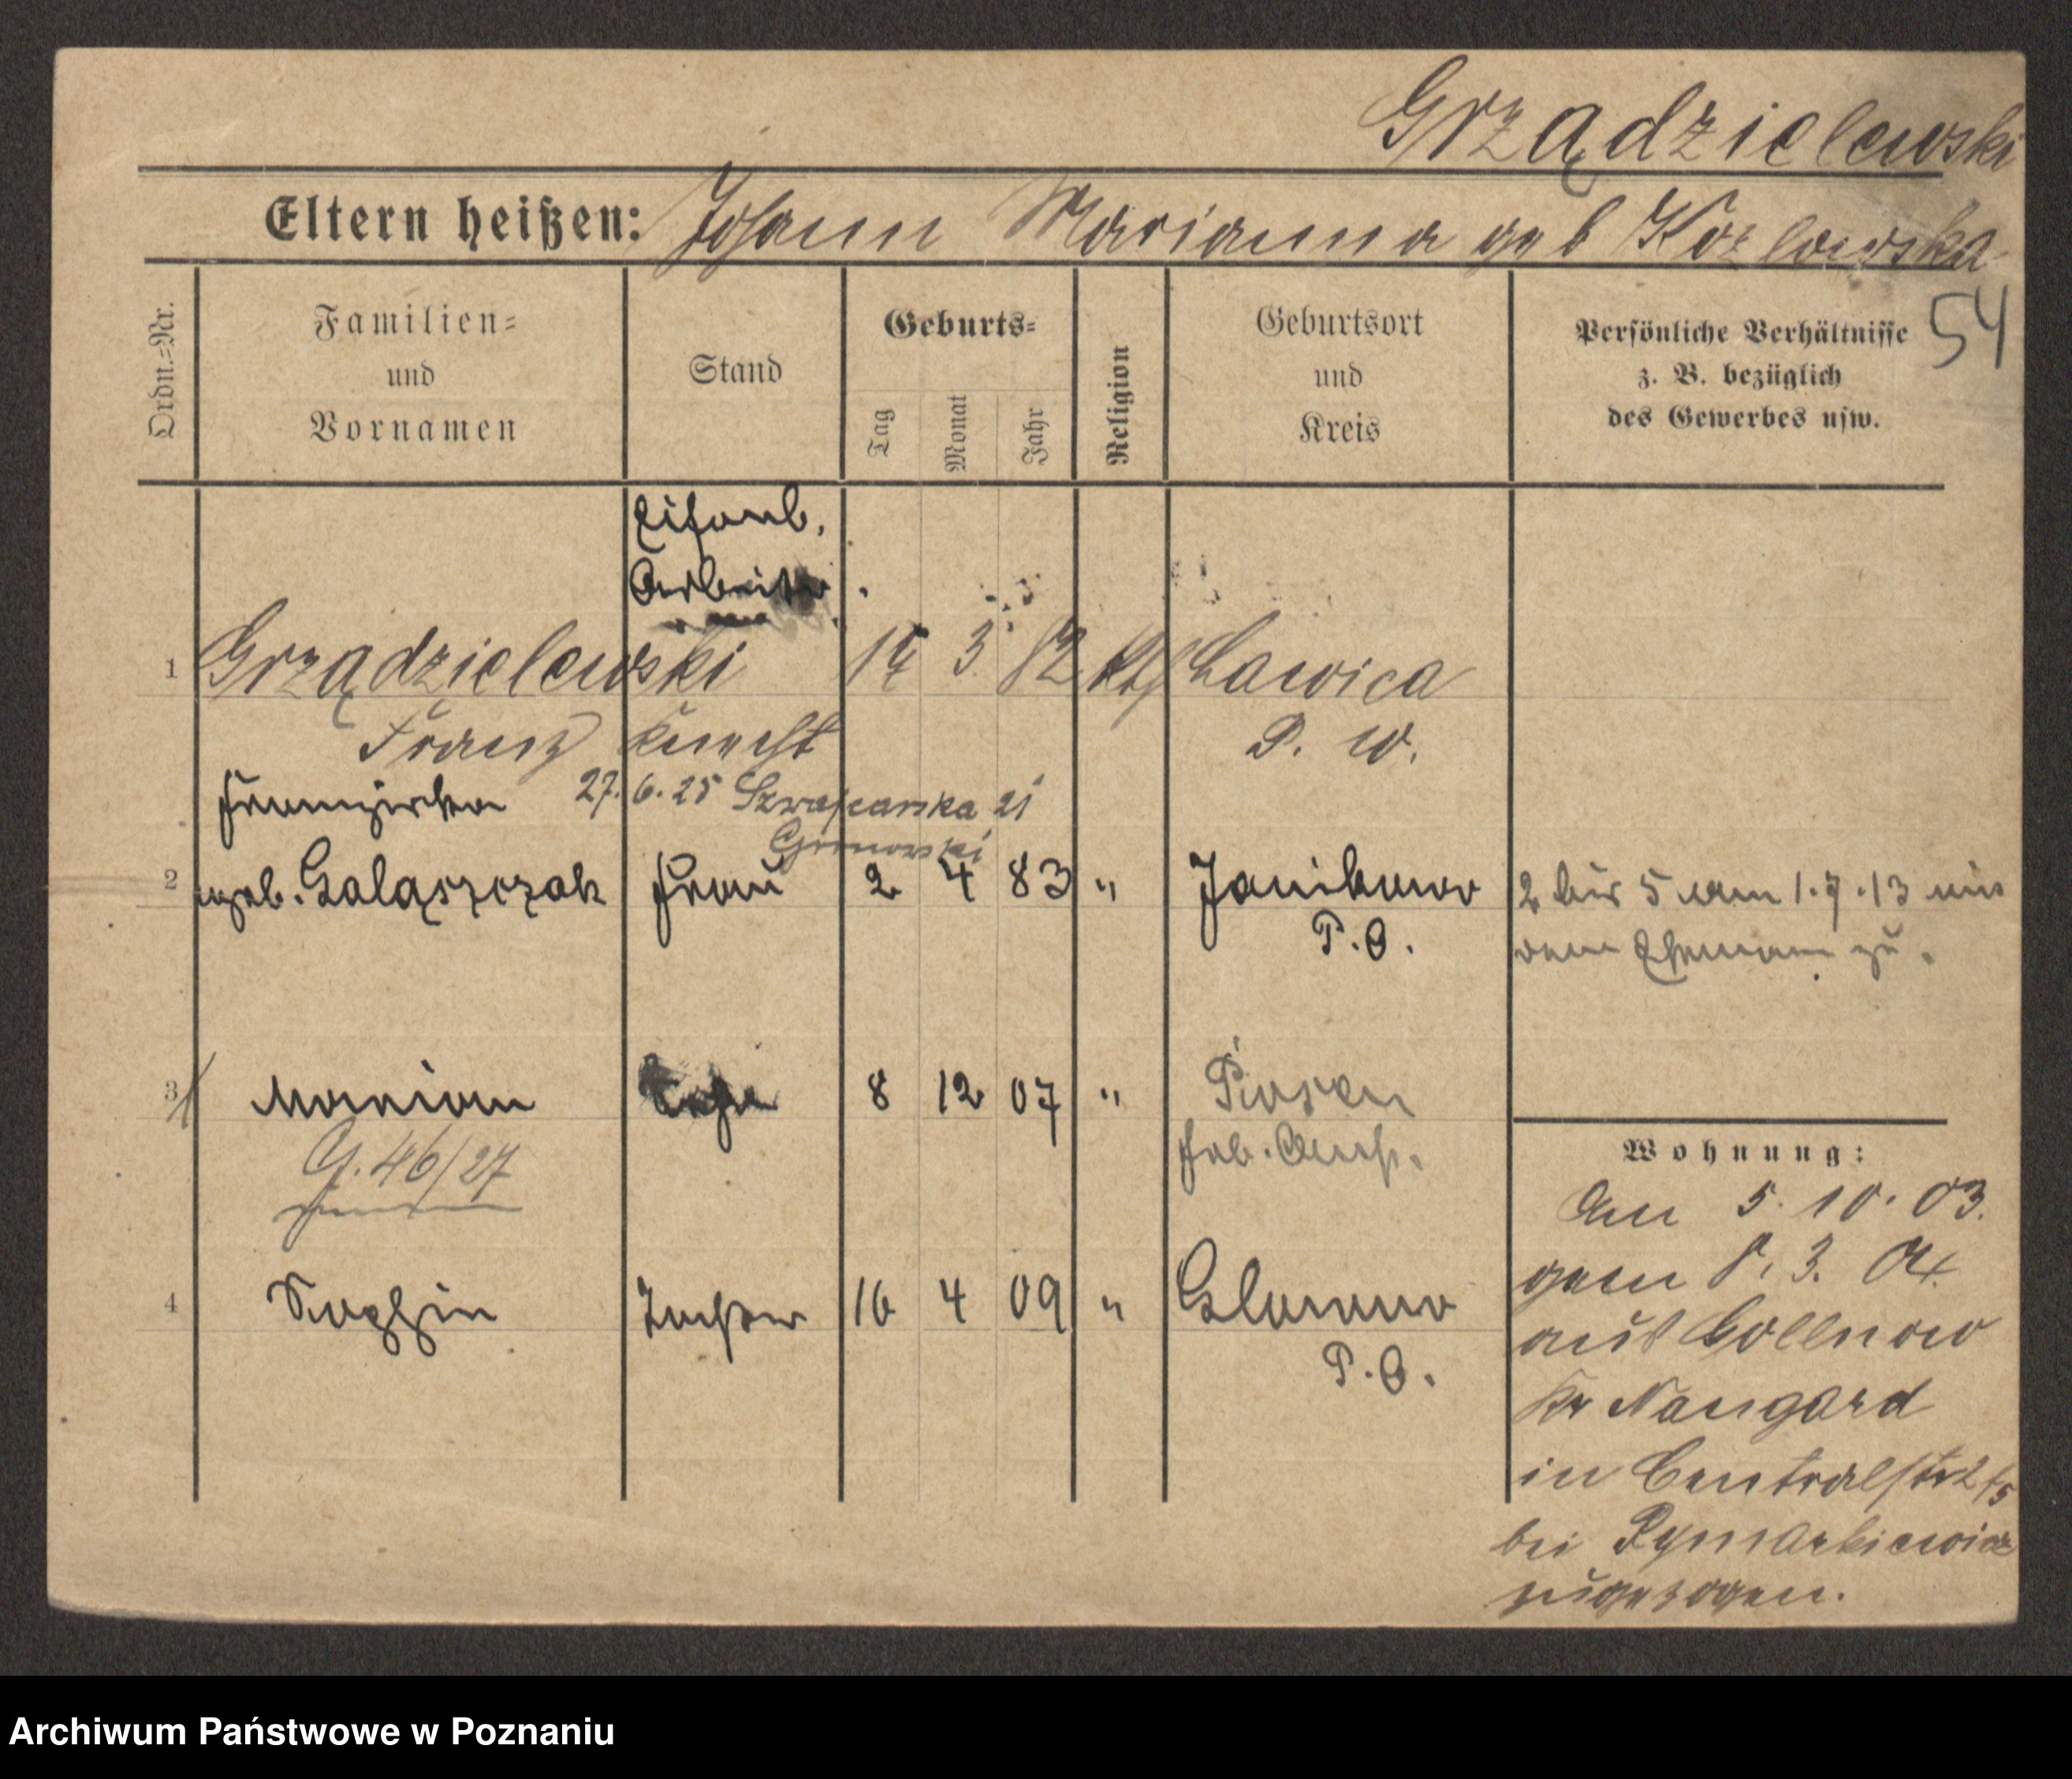 Grządzielewski
Eltern heißen: Johann Marianna geb Kozlowska
54
Ordn.=Nr.
Familien=
und
Vornamen
Stand
Geburts=
Tag
Monat
Jahr
Religion
Geburtsort
und
Kreis
Persönliche Verhältnisse
z. B. bezüglich
des Gewerbes usw.
Eisenb.
Arbeiter
1 Grządzielewski 14 3 82 kth Lawica
Franz Knecht P. W.
Franziska 27.6.25 Szwajcarska 21
2 geb. Galąszczak Frau 2 4 83 " Janikowo
P.O.
2 bis 5 am 1.7.13 mit
dem Ehemann zu.
3 Marian 8 12 07 " Posen
G. 46/27
4 Sophia Tochter 16 4 09 " Glowno
P.O.
Wohnung:
Am 5. 10. 03.
gem 8. 3. 04.
aus Gollnow
Kr Naugard
in Centralstr
bei Rymarkiewicz
zugezogen.
Archiwum Państwowe w Poznaniu